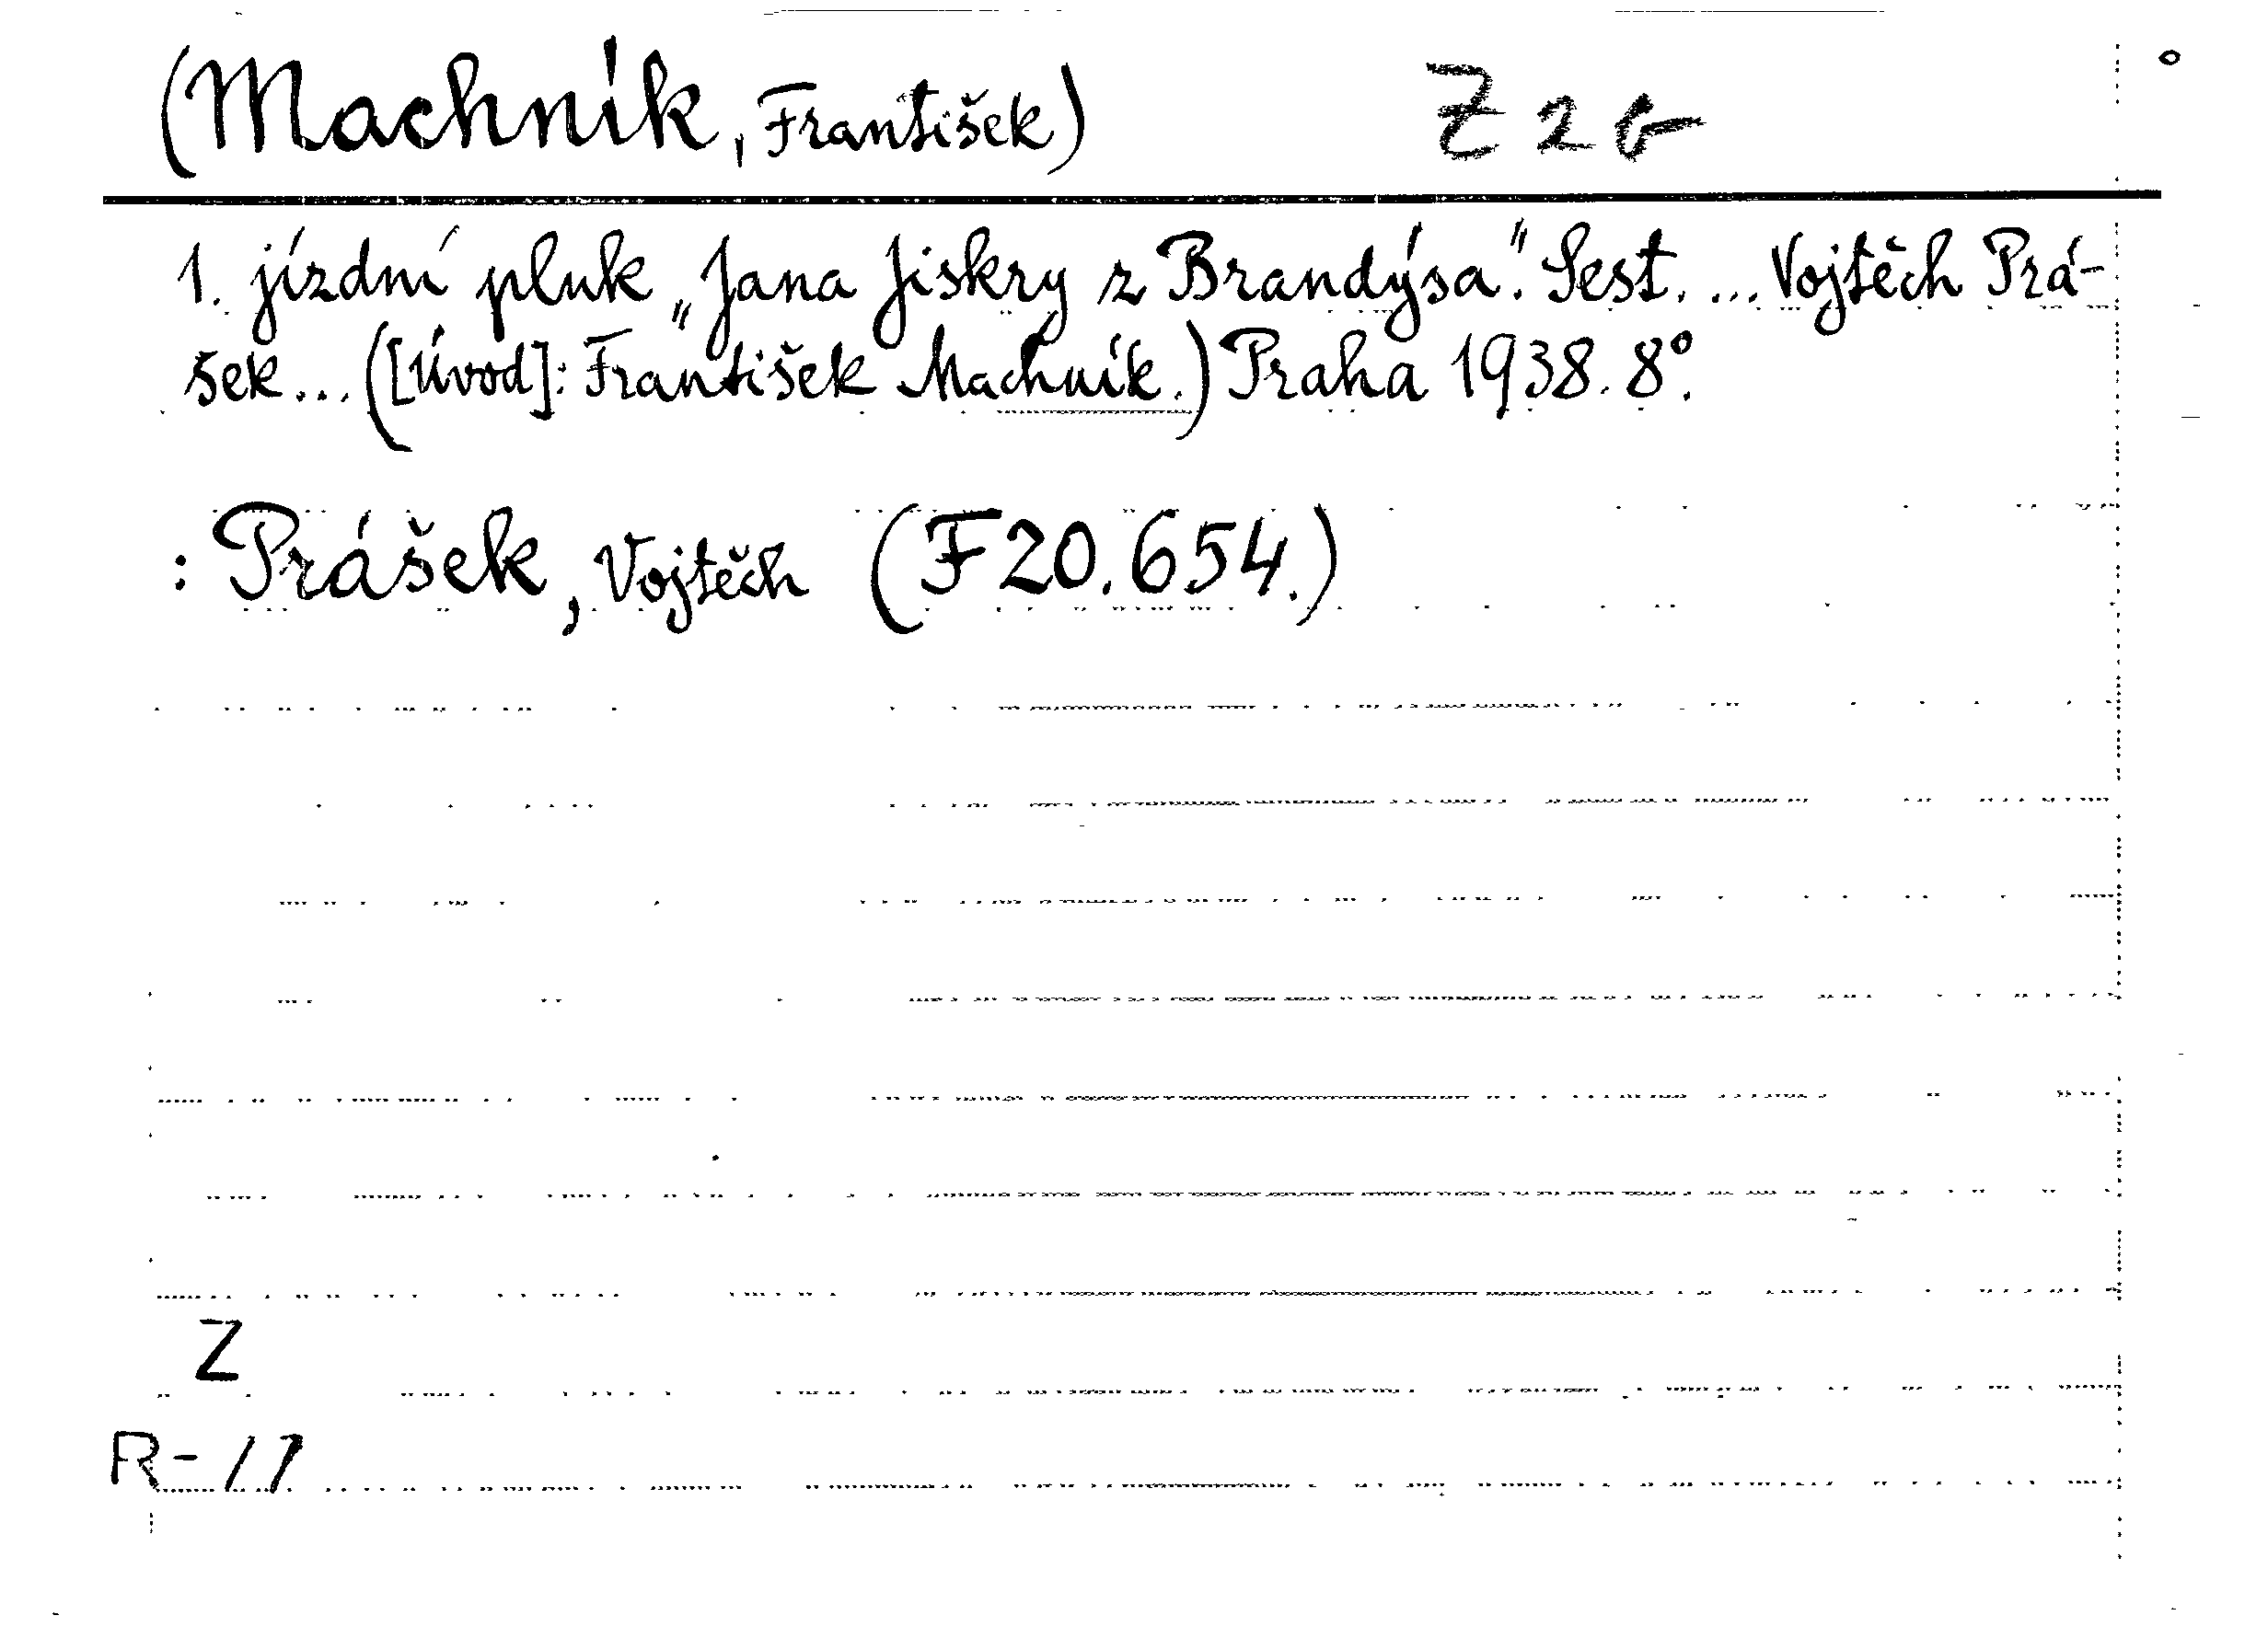 (Machník, František) Z 2 b
1. jízdní pluk „Jana Jiskry z Brandýsa“. Sest. ... Vojtěch Prá-
šek... ([Úvod]: František Machník.) Praha 1938. 8°.
: Prášek, Vojtěch (F 20.654.)
Z
R-17